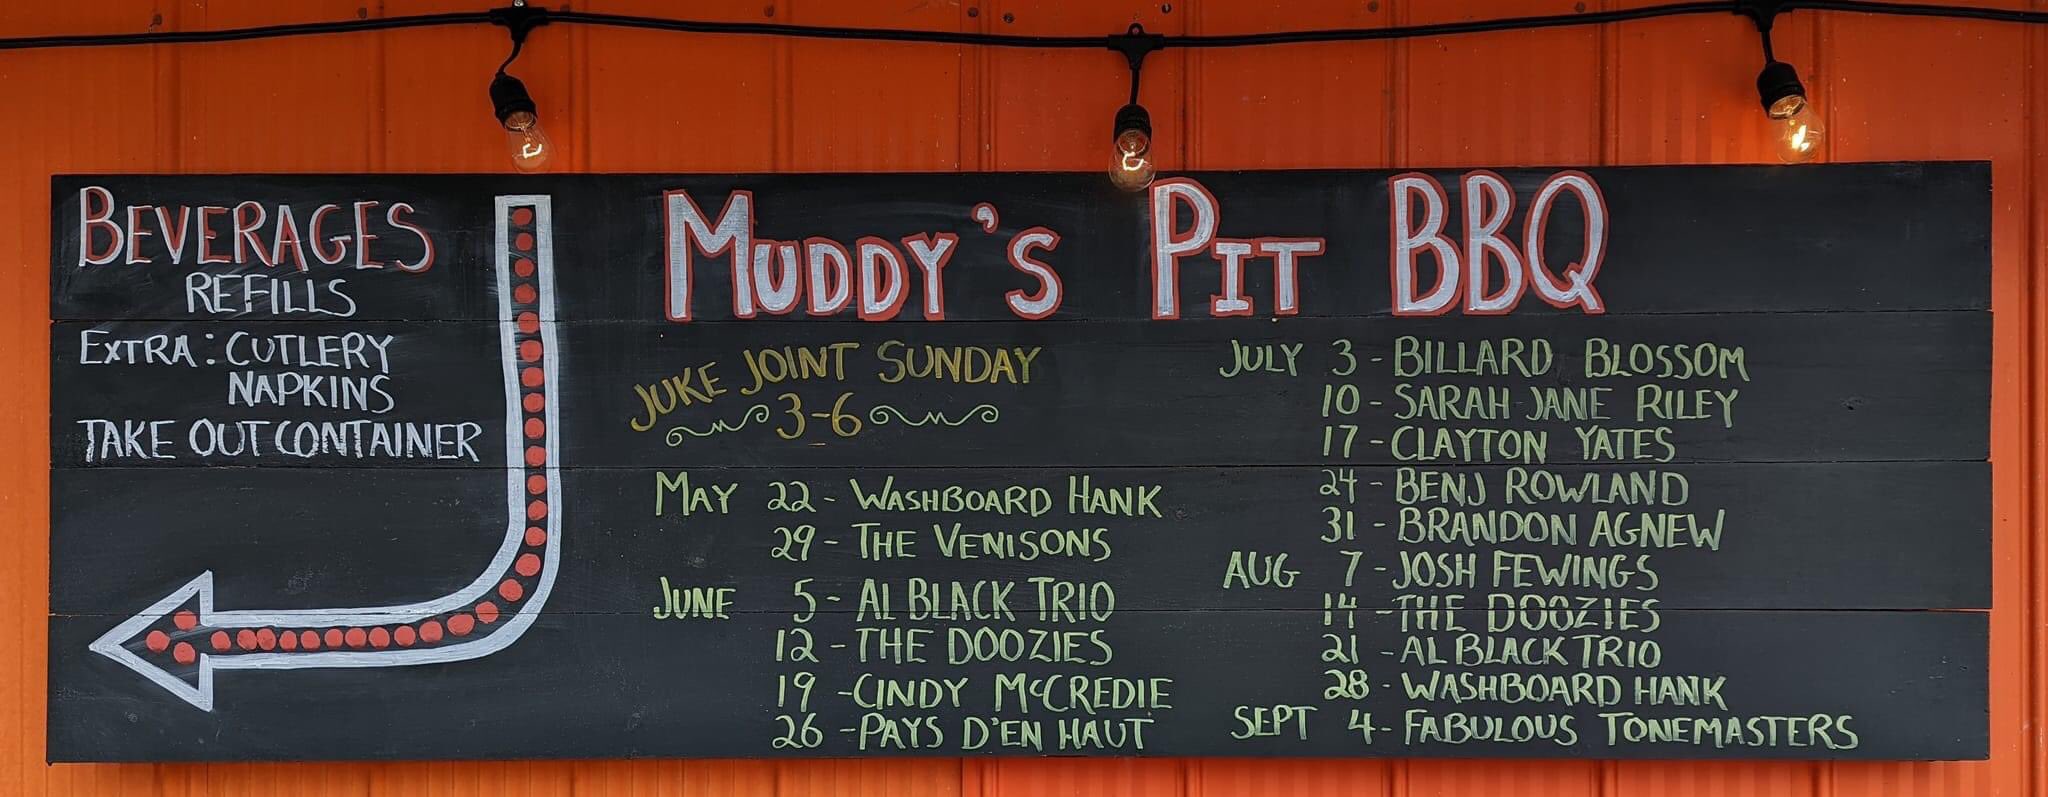 BEVERAGES
REFILLS
EXTRA: CUTLERY
NAPKINS
TAKE OUT CONTAINER
MUDDY'S PIT BBQ
JUKE JOINT SUNDAY
3-6
MAY 22 - WASHBOARD HANK
29 - THE VENISONS
JUNE 5 - AL BLACK TRIO
12 - THE DOOZIES
19 - CINDY McCREDIE
26 - PAYS D'EN HAUT
JULY 3 - BILLARD BLOSSOM
10 - SARAH JANE RILEY
17 - CLAYTON YATES
24 - BENJ ROWLAND
31 - BRANDON AGNEW
AUG 7 - JOSH FEWINGS
14 - THE DOOZIES
21 - AL BLACK TRIO
28 - WASHBOARD HANK
SEPT 4 - FABULOUS TONEMASTERS